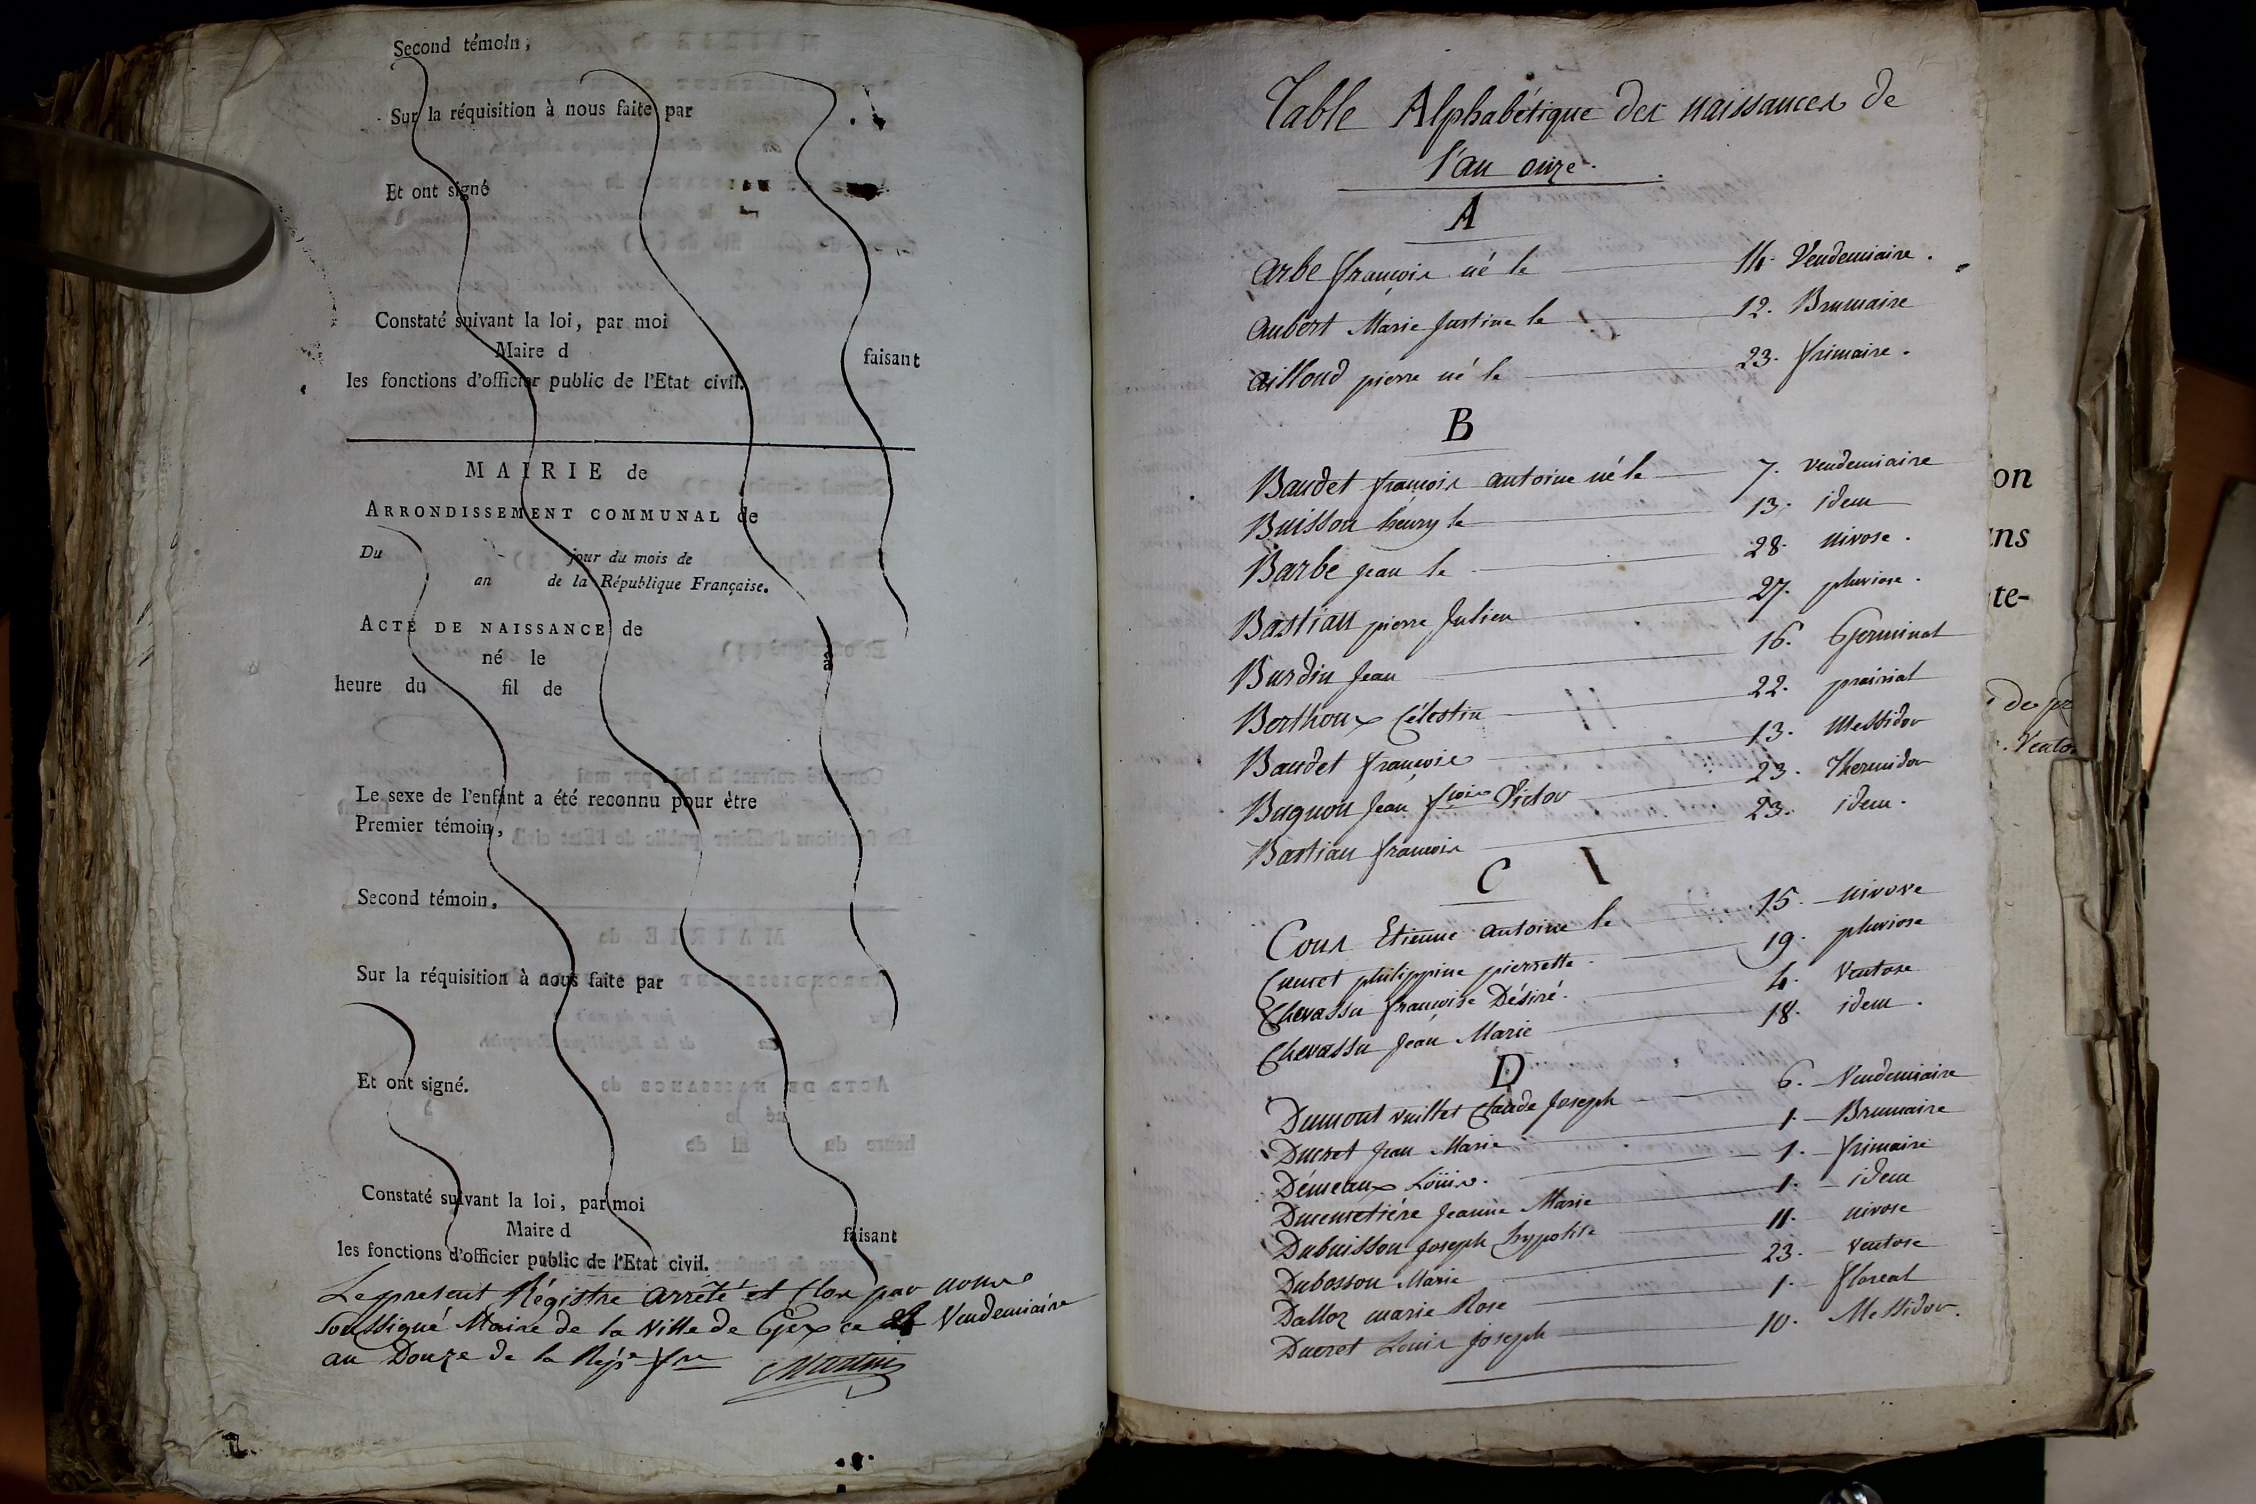 Second témoin,
Sur la réquisition à nous faite par
Et ont signé
Constaté suivant la loi, par moi
Maire d faisant
les fonctions d'officier public de l'Etat civil.
MAIRIE de
ARRONDISSEMENT COMMUNAL de
Du jour du mois de
an de la République Française.
ACTE DE NAISSANCE de
né le
heure du fil de
Le sexe de l'enfant a été reconnu pour être
Premier témoin,
Second témoin,
Sur la réquisition à nous faite par
Et ont signé.
Constaté suivant la loi, par moi
Maire d faisant
les fonctions d'officier public de l'Etat civil.
Le present Régistre arrêté et clos par nous
Soussigné Maire de la Ville de Gex ce Vendemiaire
an Douze de la Rép.e fse
Table Alphabétique des naissances de
l'an onze.
A
Arbe françois né le 14. Vendemiaire.
Aubert Marie Justine le 12. Brumaire
Ailloud pierre né le 23. frimaire.
B
Baudet françois antoine né le 7. vendemiaire
Buisson henry le 13. idem
Barbe Jean le 28. nivose.
Bastian pierre Julien 27. pluviose.
Burdin Jean 16. Germinal
Berthoux Célestin 22. prairial
Baudet françois 13. Messidor
Bugnon Jean fcois Victor 23. Thermidor
Bastian françois 23. idem.
C
Cour Etienne antoine le 15. nivose
Cuncet philippine pierrette. 19. pluviose
Chevassu françoise Désiré. 4. Ventose
Chevassu Jean Marie 18. idem.
D
Dumont vuillet Claude Joseph 6. Vendemiaire
Ducret Jean Marie 1. Brumaire
Démeaux Loüis. 1. frimaire
Ducemetiére Jeanne Marie 1. idem
Dubuisson Joseph hypolite 11. nivose
Dubosson Marie 23. Ventose
Dalloz marie Rose 1. floreal
Ducret Louis Joseph 10. Messidor.
on
ans
te-